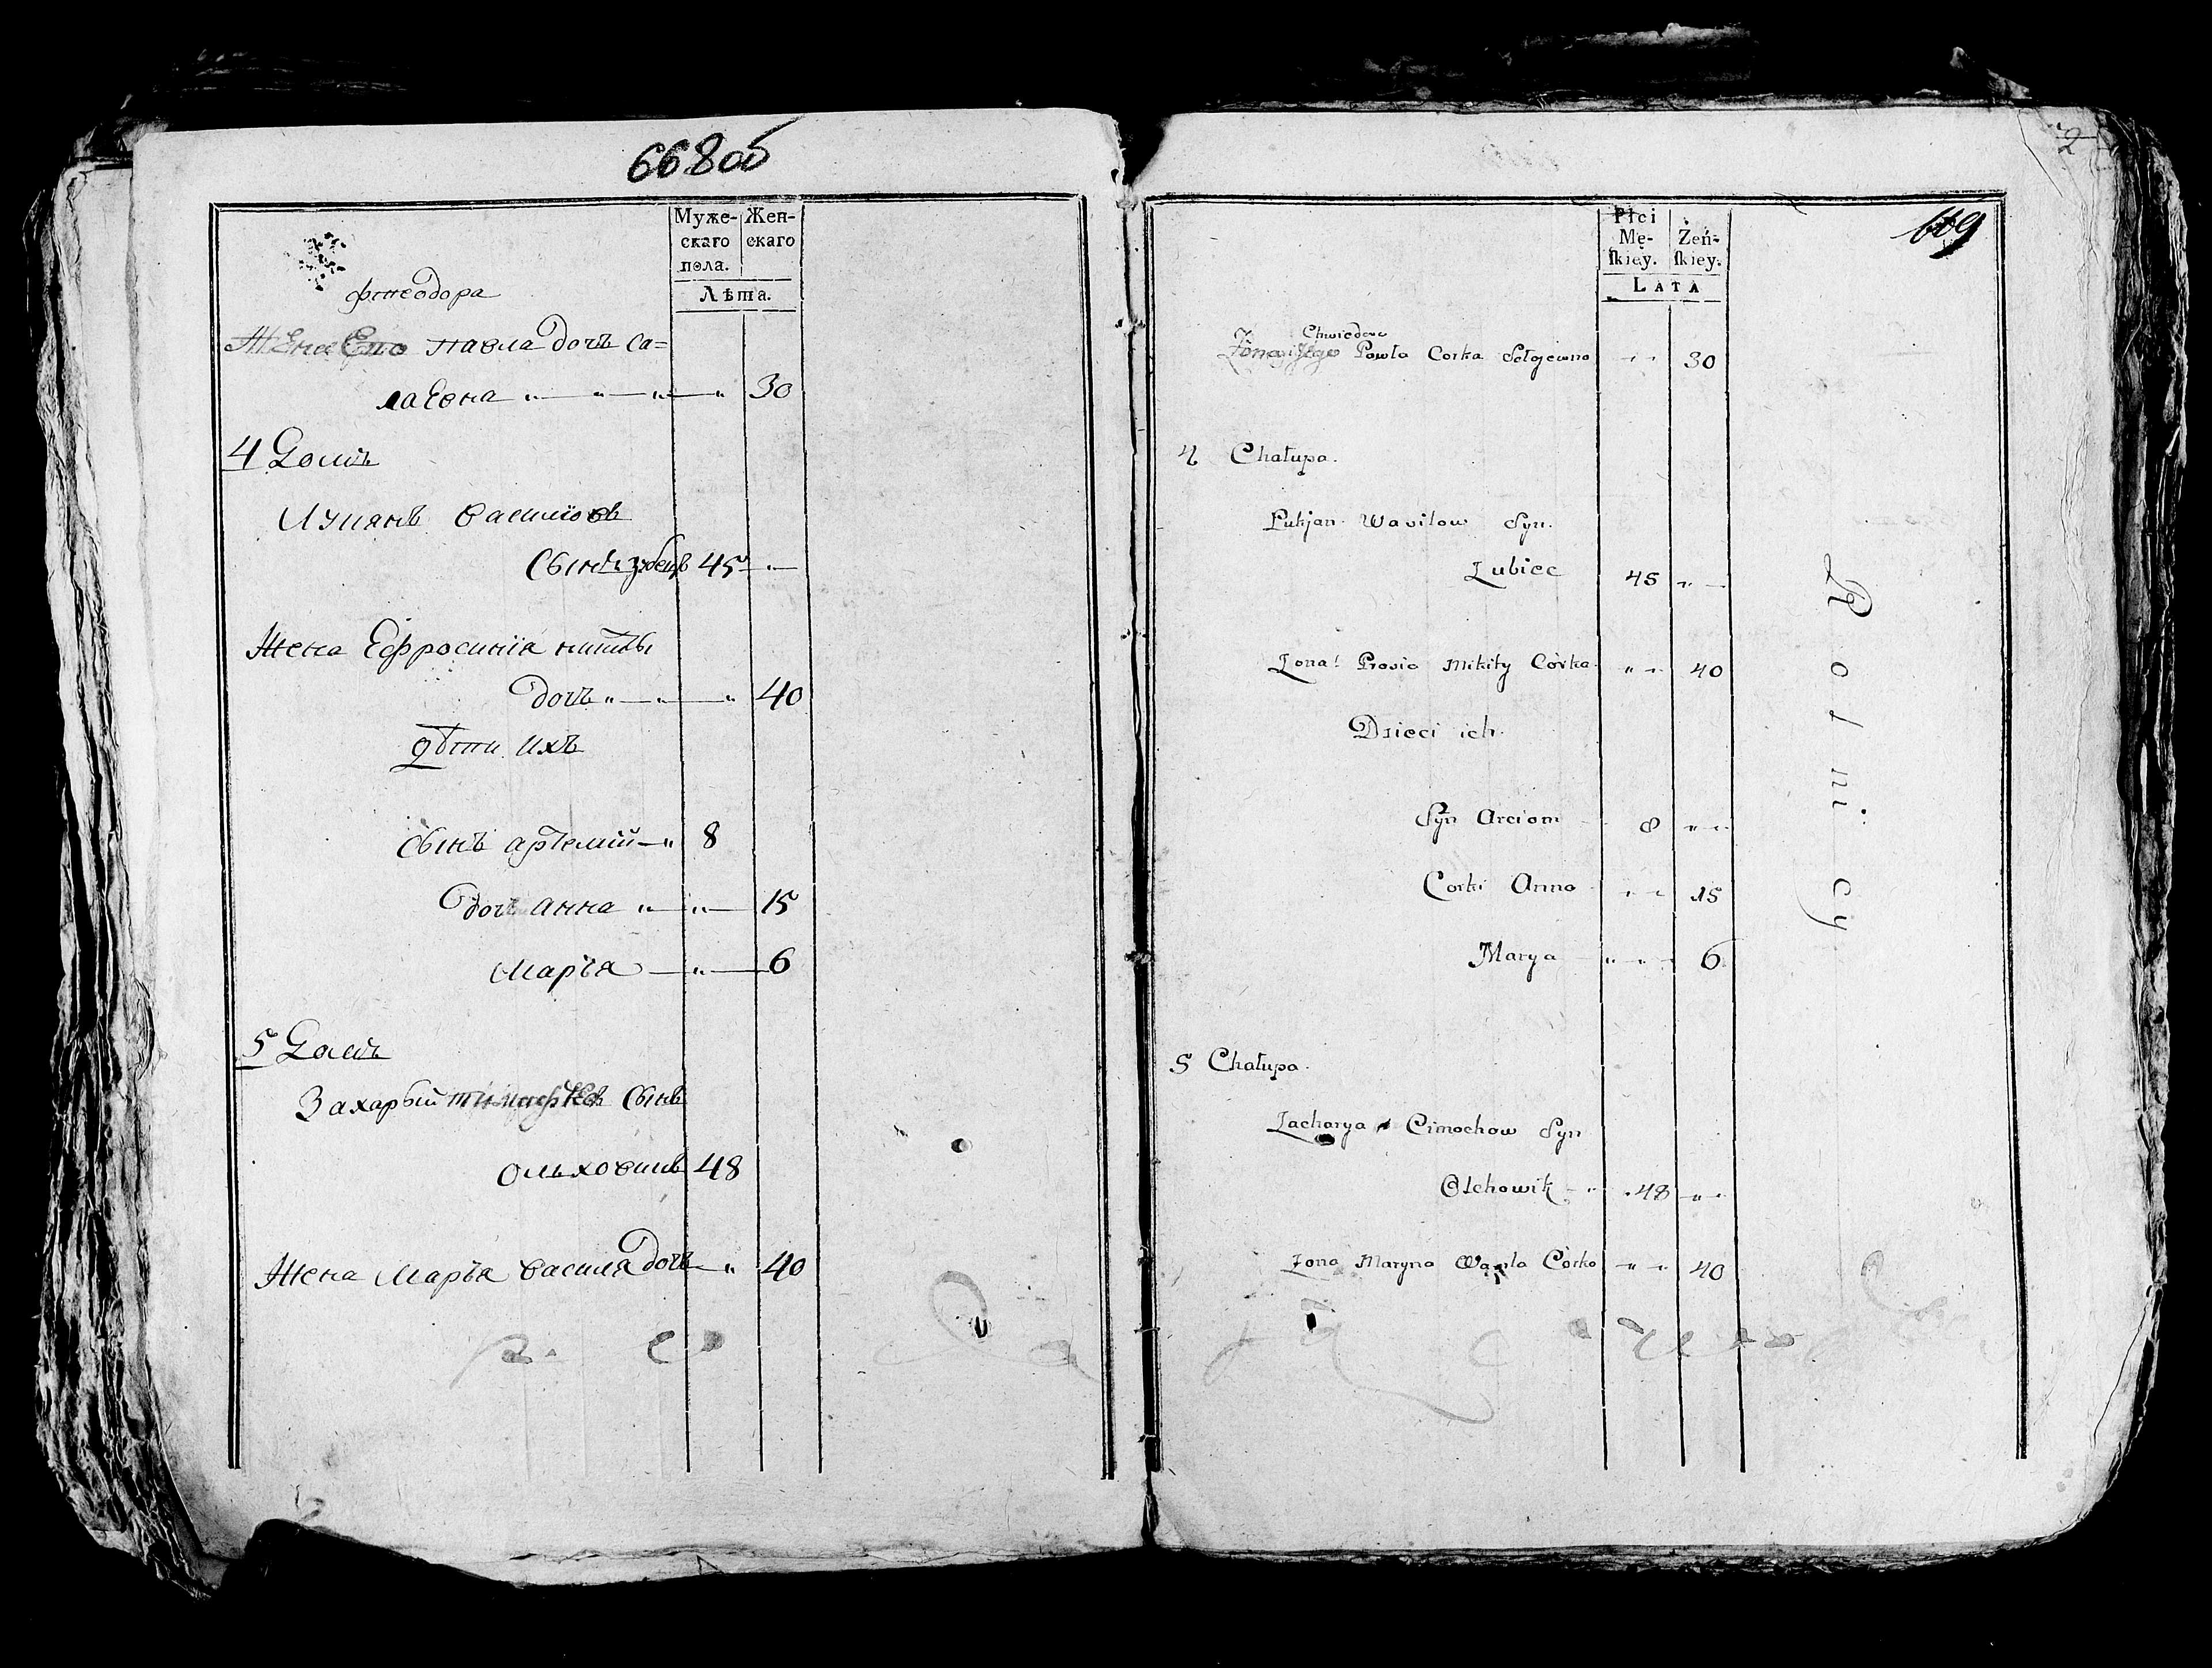 668об
Муже-
скаго
пола.
Жен-
скаго
Лѣта.
фтеодора
Жена Его павла дочъ са=
лаевна 30
4 Домъ
Лукянъ василювъ
сынъ зубецъ 45
Жена Ефросинїа никиты
дочъ 40
дѣти ихъ
сынъ артемїй 8
дочъ анна 15
Маръя 6
5 Домъ
Захарый сынъ
ольховикъ 48
Жена Маръя василя дочъ 40
2
669
Płci
Mę-
ſkiey.
Żeń-
ſkiey.
LATA
Chwiedora
Żona Jego Pawła Corka 30
4 Chałupa.
Łukjan Wasilow Syn.
Zubiec 45
Zona Prosia Mikity Córka 40
Dzieci ich.
Syn Arciom 8
Corki Anna 15
Marya 6
5 Chałupa.
Zacharya Cimochow Syn
Olchowik 48
Zona Maryna Córka 40
Rolnicy